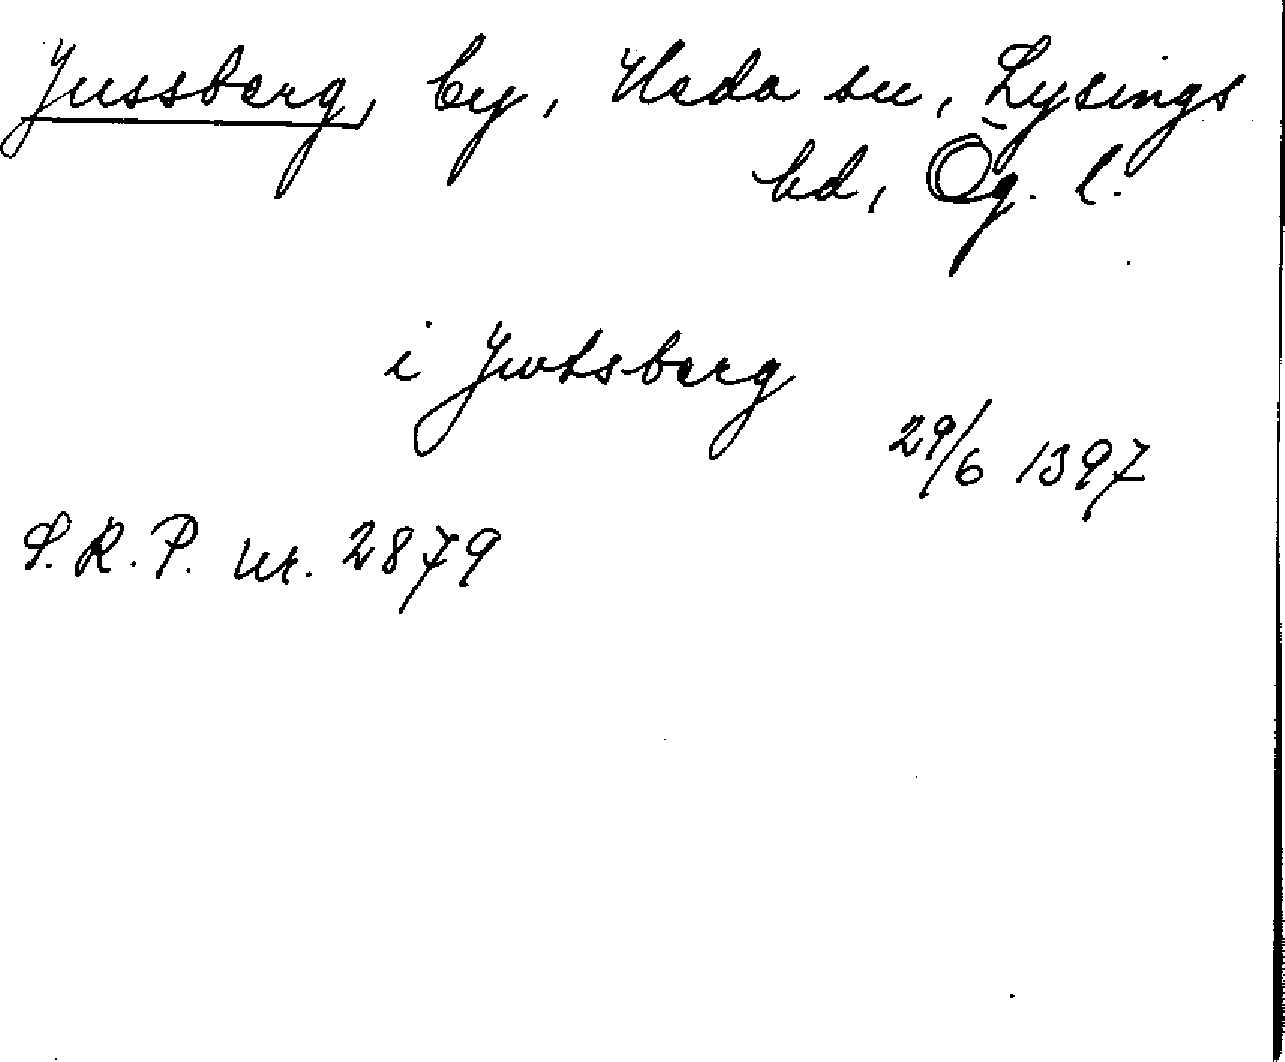 Jussberg, by, Heda sn, Lysings
hd, Ög. l.
i Jwtsberg
29/6 1397
S.R.P. nr. 2879